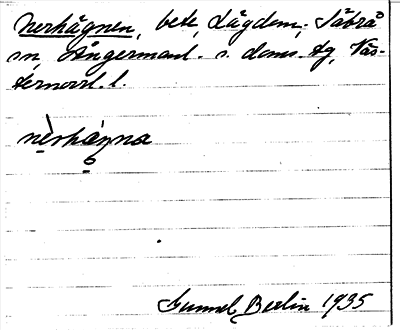 Nerhågnen, bete, Lägdom, Säbrå
sn, Ångermanl. s. doms. tg, Väs-
ternorrl. l.
nèrhågna
Gunnel Berlin 1935